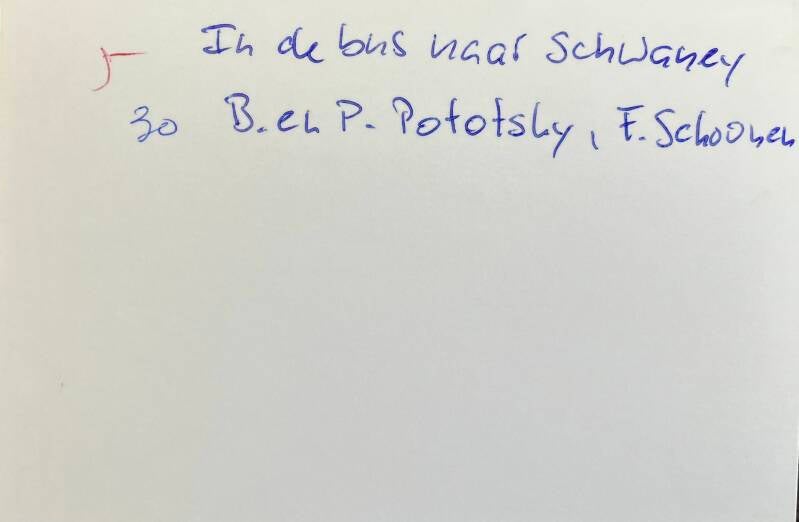 5 In de bus naar Schwaney
30 B. en P. Pototsky, F. Schoonen